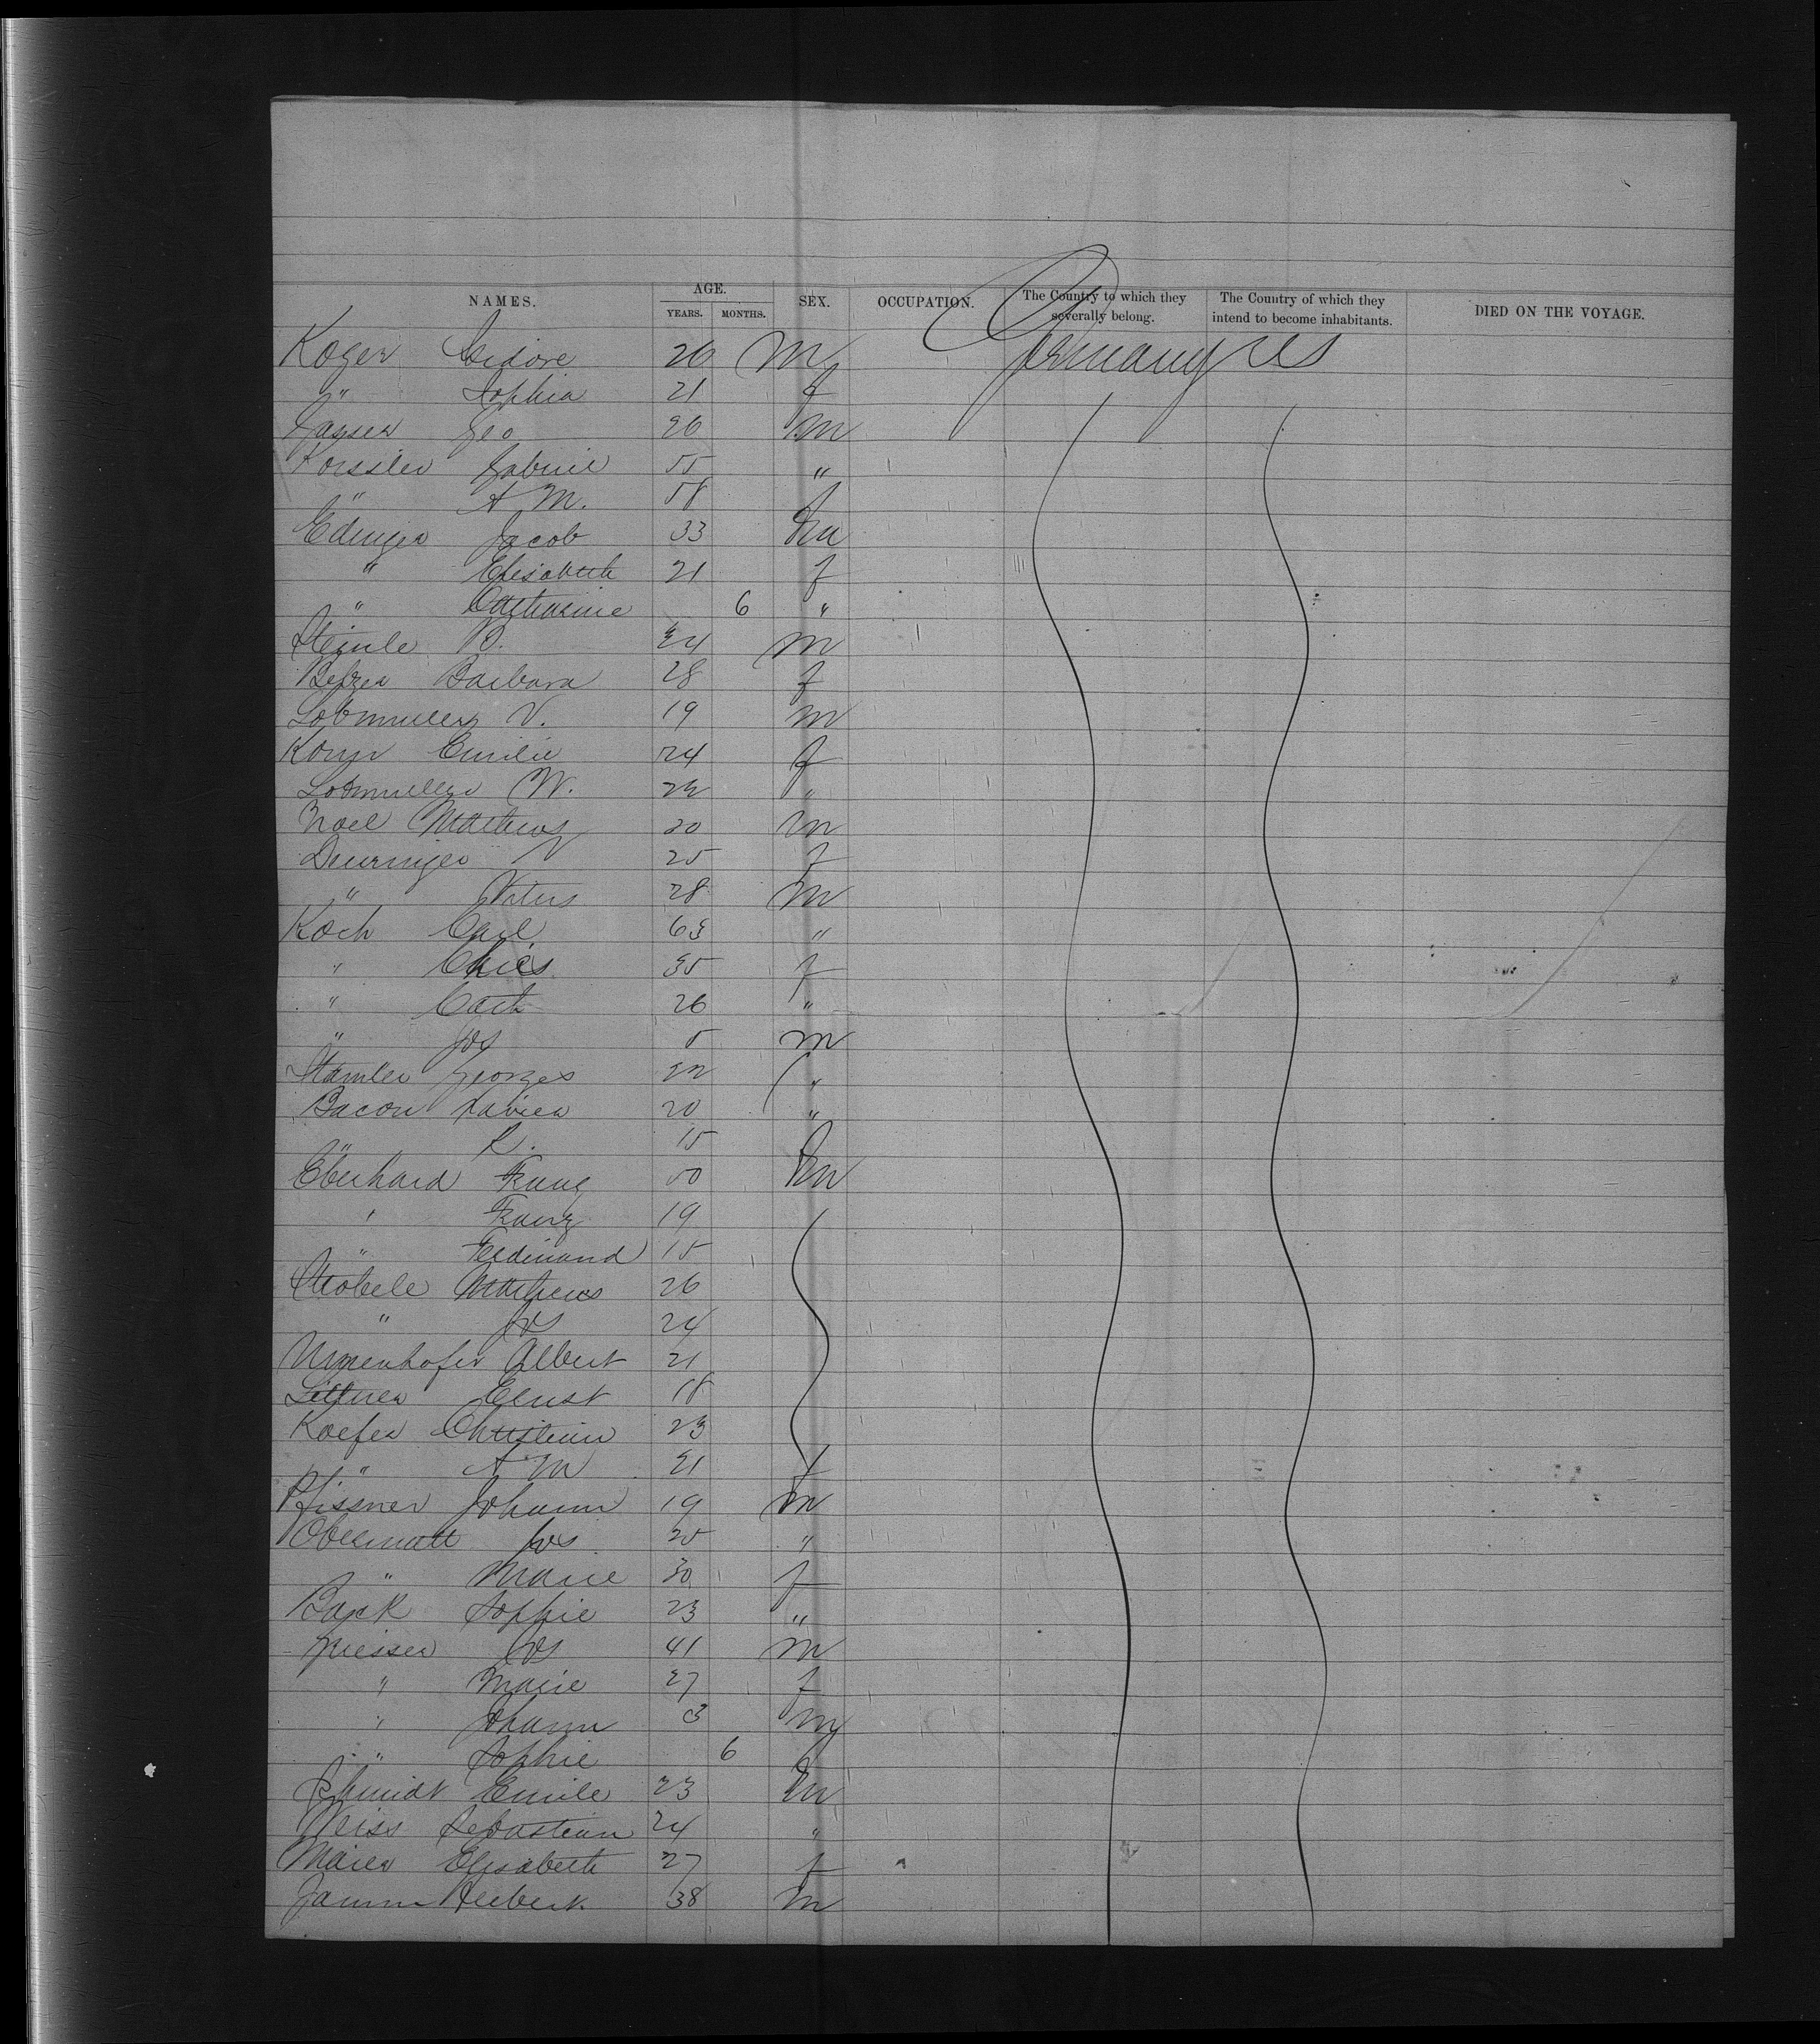 NAMES. AGE. YEARS. MONTHS. SEX. OCCUPATION. The Country to which they severally belong. The Country of which they intend to become inhabitants. DIED ON THE VOYAGE.
Koger Isidore 26 m Germany US
" Sophia 21 f
Geo 26 m
Gabriel 55 "
" A M. 58 f
Edinger Jacob 33 m
" Elisabeth 21 f
" Catharine 6 "
Steinle B. 34 m
Barbara 28 f
Lobmuller V. 19 m
Emilie 24 f
Lobmuller W. 22 "
Noel Mathews 20 m
25 f
" Vitus 28 m
Koch Carl 63 "
" 35 f
" Cath 26 "
" Jos 5 m
Stamler Georges 32 "
Bacon Xavier 20 "
" R. 15 f
Eberhard Franz 50 m
" Franz 19
" Ferdinand 15
Strobele Mathews 26
" Jos 24
Albert 21
Ernst 18
Koefer Christian 23
" A M 21 f
Johann 19 m
Obermatt Jos 25 "
" Marie 30 f
Back Sophie 23 "
Griesser Jos 41 m
" Marie 27 f
" Johann 3 m
" Sophie 6 f
Schmidt Emile 23 m
Weiss Sebastian 24 "
Maier Elisabeth 27 f
Hubert 38 m